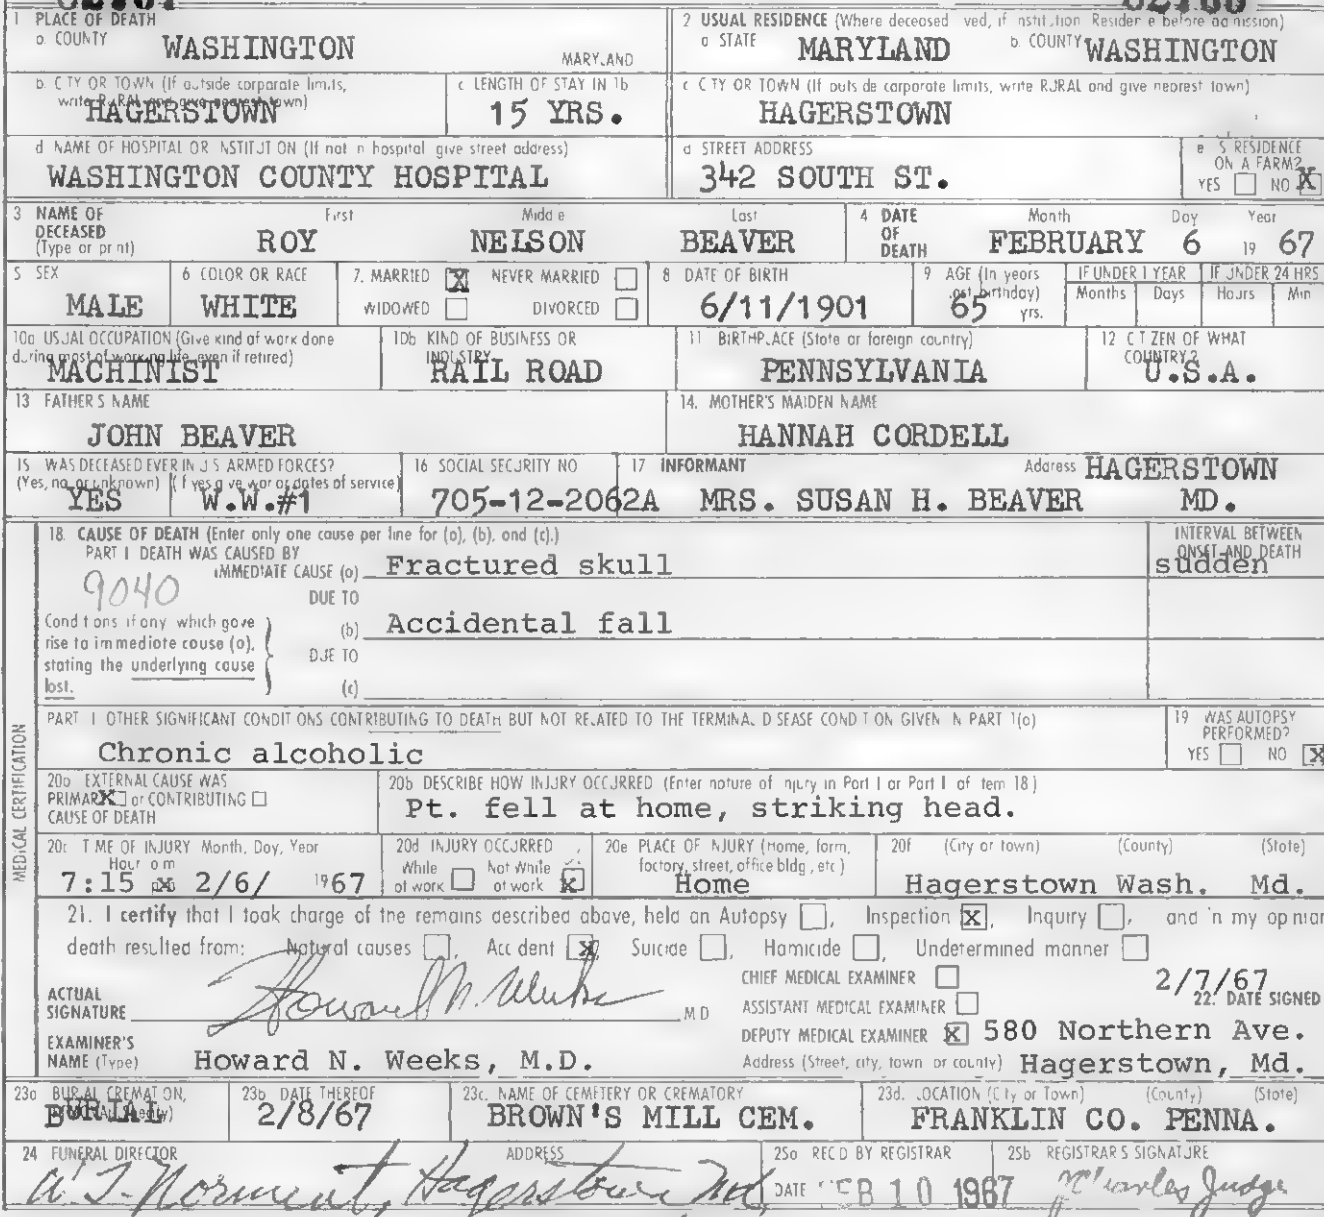 1 PLACE OF DEATH
a. COUNTY WASHINGTON MARYLAND
2 USUAL RESIDENCE (Where deceased ved, if nstit.tion Residen e before admission)
a STATE MARYLAND b. COUNTY WASHINGTON
b. C TY OR TOWN (If outside corporate limits, write RURAL and give nearest town) HAGERSTOWN
c LENGTH OF STAY IN 1b 15 YRS.
c C TY OR TOWN (If outs de corporate limits, write RURAL and give nearest town) HAGERSTOWN
d NAME OF HOSPITAL OR NSTITUT ON (If not n hospital give street address) WASHINGTON COUNTY HOSPITAL
d STREET ADDRESS 342 SOUTH ST.
e S RESIDENCE ON A FARM? YES NO X
3 NAME OF DECEASED (Type or print) First ROY Midd e NELSON Last BEAVER
4 DATE OF DEATH Month FEBRUARY Day 6 Year 19 67
5 SEX MALE
6 COLOR OR RACE WHITE
7. MARRIED X NEVER MARRIED WIDOWED DIVORCED
8 DATE OF BIRTH 6/11/1901
9 AGE (In years last birthday) 65 yrs.
IF UNDER 1 YEAR Months Days IF UNDER 24 HRS Hours Min
10a USUAL OCCUPATION (Give kind of work done during most of working life, even if retired) MACHINIST
10b KIND OF BUSINESS OR INDUSTRY RAIL ROAD
11 BIRTHPLACE (State or foreign country) PENNSYLVANIA
12 C T ZEN OF WHAT COUNTRY? U.S.A.
13 FATHER S NAME JOHN BEAVER
14. MOTHER'S MAIDEN NAME HANNAH CORDELL
15 WAS DECEASED EVER IN U S ARMED FORCES? (Yes, no, or unknown) YES (If yes g ve war or dates of service) W.W.#1
16 SOCIAL SECURITY NO 705-12-2062A
17 INFORMANT MRS. SUSAN H. BEAVER Address HAGERSTOWN MD.
18. CAUSE OF DEATH (Enter only one cause per line for (a), (b), and (c).)
PART I DEATH WAS CAUSED BY
IMMEDIATE CAUSE (a) Fractured skull
INTERVAL BETWEEN ONSET AND DEATH sudden
9040
DUE TO
Cond t ons if any which gave rise to immediate cause (a), stating the underlying cause last.
(b) Accidental fall
DUE TO
(c)
PART I OTHER SIGNIFICANT CONDIT ONS CONTRIBUTING TO DEATH BUT NOT RELATED TO THE TERMINAL D SEASE COND T ON GIVEN N PART 1(a)
Chronic alcoholic
19 WAS AUTOPSY PERFORMED? YES NO X
MEDICAL CERTIFICATION
20a EXTERNAL CAUSE WAS PRIMARY X or CONTRIBUTING CAUSE OF DEATH
20b DESCRIBE HOW INJURY OCCURRED (Enter nature of njury in Part I or Part I of tem 18)
Pt. fell at home, striking head.
20c T ME OF INJURY Month, Day, Year Hour a m 7:15 pm 2/6/ 1967
20d INJURY OCCURRED While at work Not While at work X
20e PLACE OF NJURY (Home, farm, factory, street, office bldg, etc) Home
20f (City or town) (County) (State) Hagerstown Wash. Md.
21. I certify that I took charge of the remains described above, held an Autopsy , Inspection X , Inquiry , and n my opinion
death resulted from: Natural causes , Acc dent X , Suicide , Homicide , Undetermined manner
CHIEF MEDICAL EXAMINER
2/7/67
22. DATE SIGNED
ACTUAL SIGNATURE Howard N. Weeks M D
ASSISTANT MEDICAL EXAMINER
DEPUTY MEDICAL EXAMINER X 580 Northern Ave.
EXAMINER'S NAME (Type) Howard N. Weeks, M.D.
Address (Street, city, town or county) Hagerstown, Md.
23a BURIAL CREMAT ON, BURIAL
23b DATE THEREOF 2/8/67
23c. NAME OF CEMETERY OR CREMATORY BROWN'S MILL CEM.
23d. LOCATION (C ty or Town) (County) (State) FRANKLIN CO. PENNA.
24 FUNERAL DIRECTOR ADDRESS A. J. Norment, Hagerstown Md,
25a REC D BY REGISTRAR DATE FEB 10 1967
25b REGISTRAR S SIGNATURE Charles Judge